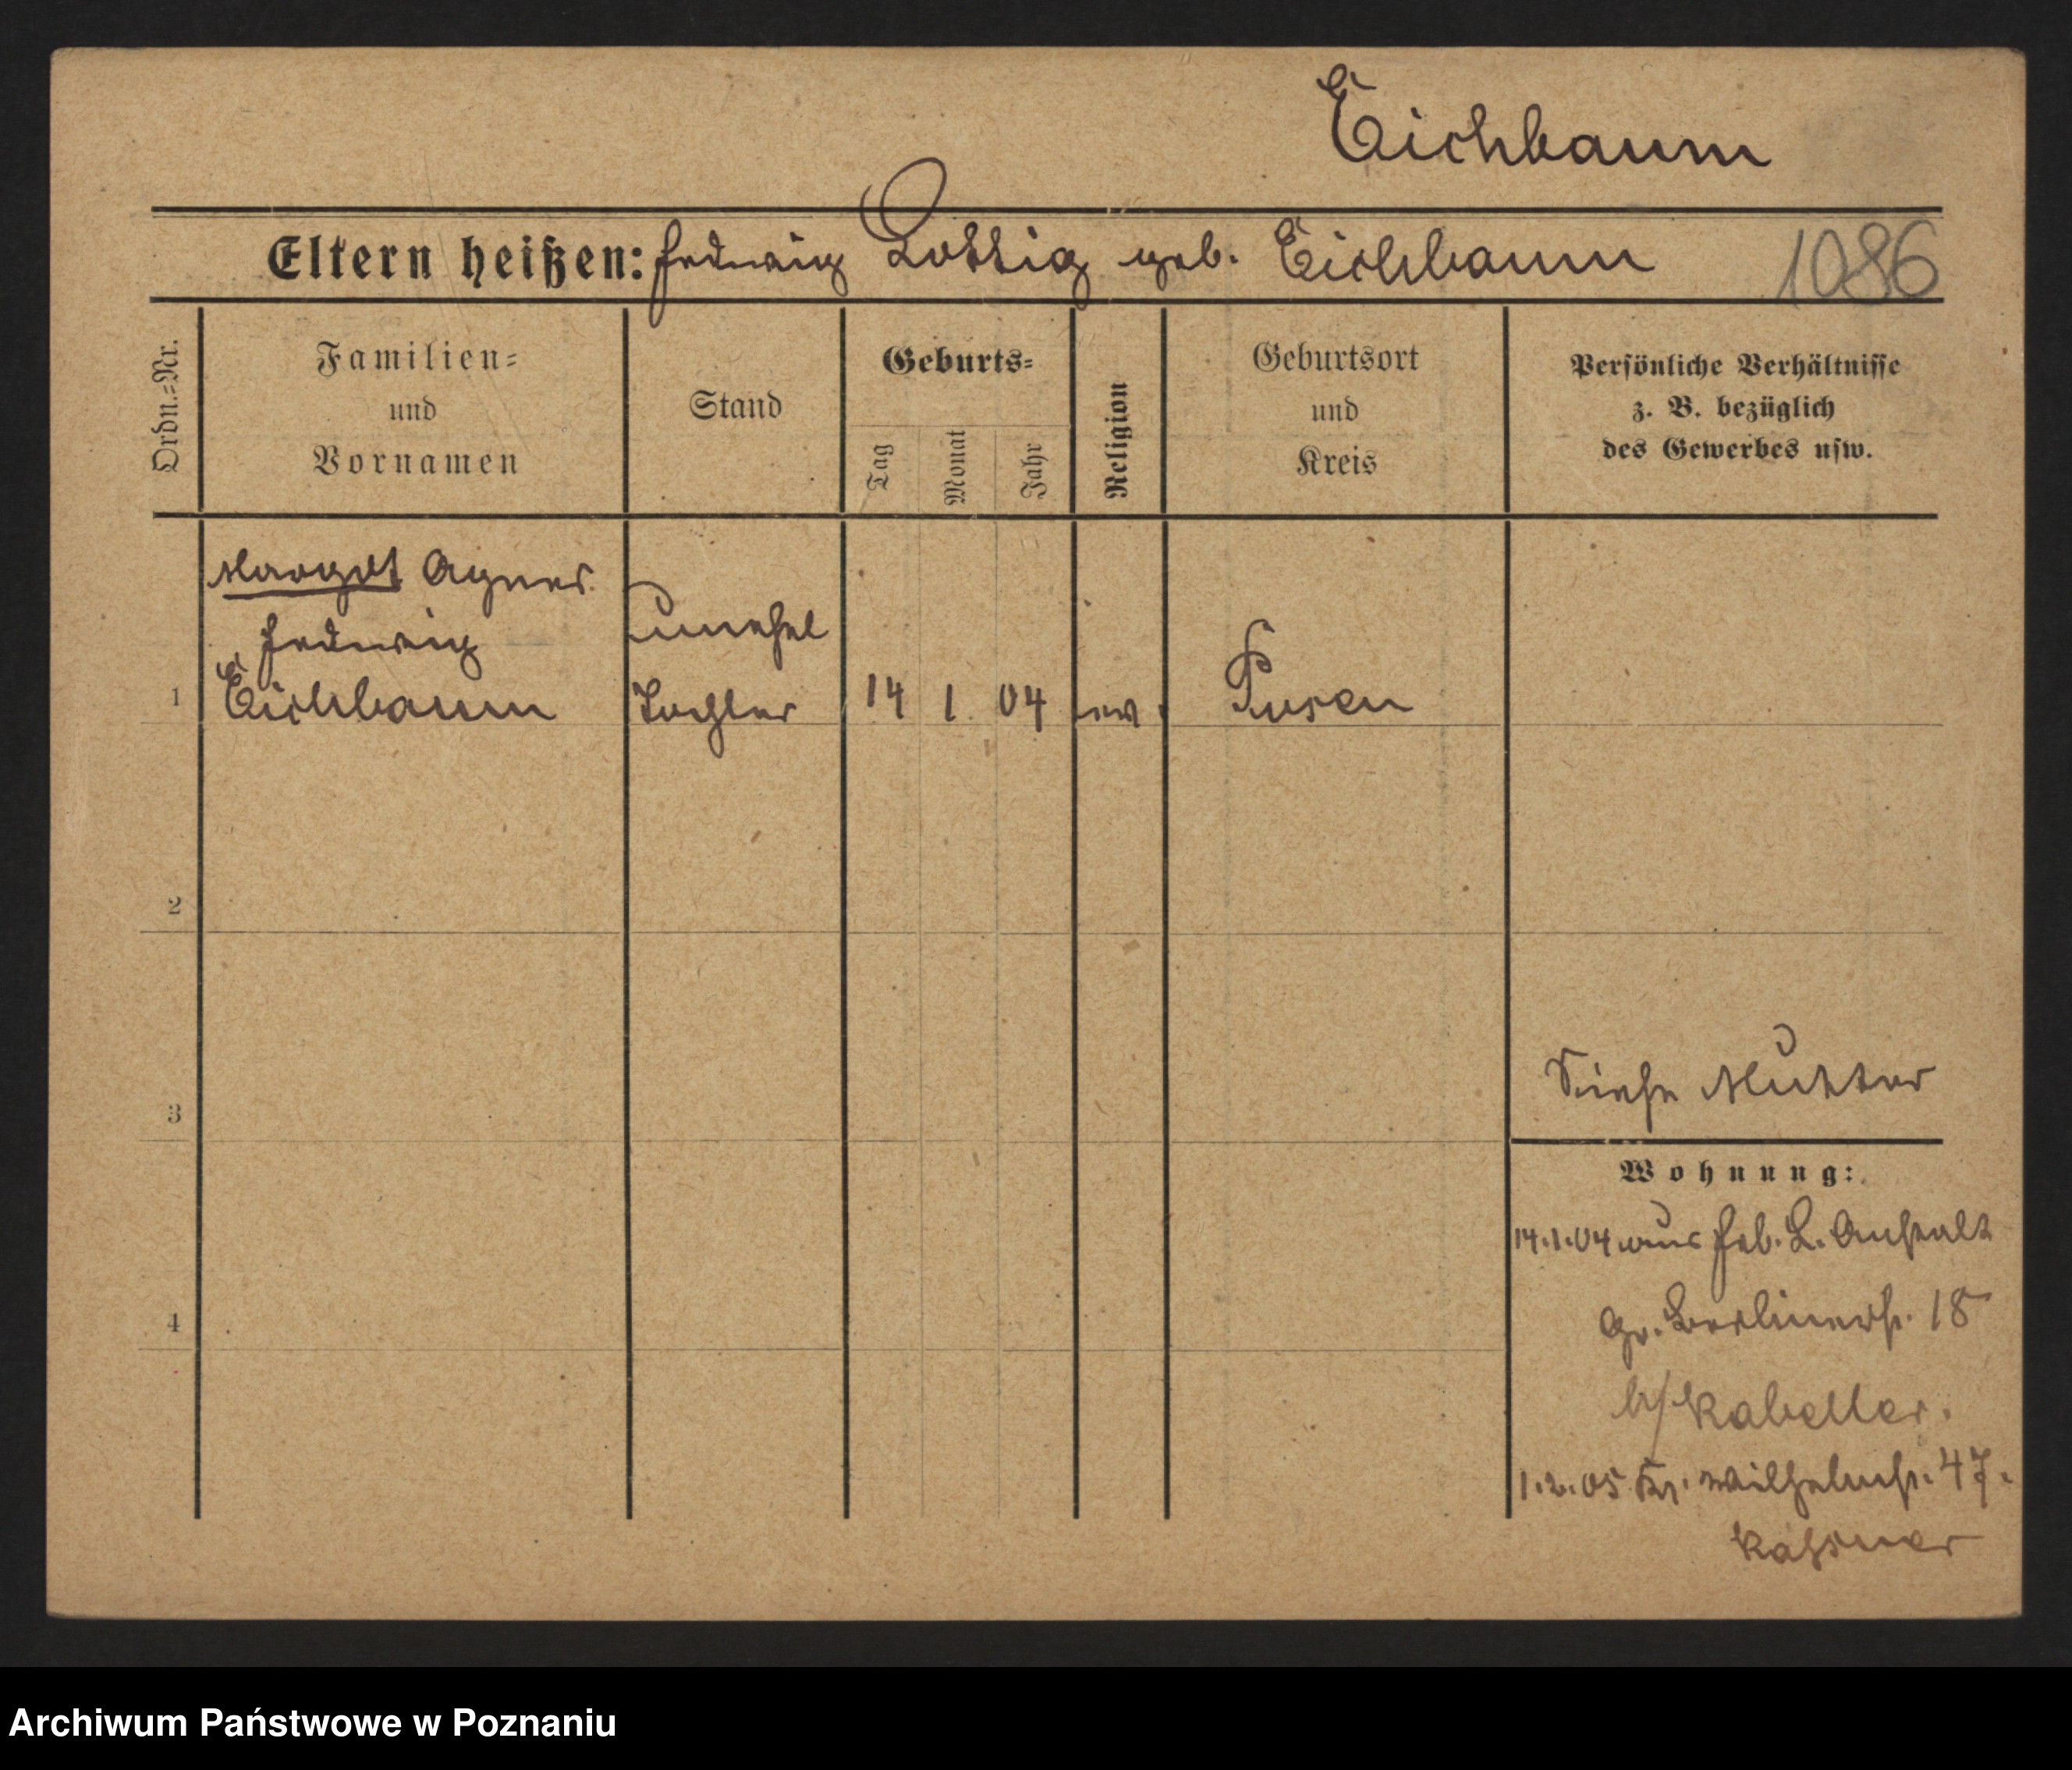 Eichbaum
Eltern heißen: Hedwig Lossig geb. Eichbaum 1086
Ordn.=Nr.
Familien=
und
Vornamen
Stand
Geburts=
Tag
Monat
Jahr
Religion
Geburtsort
und
Kreis
Persönliche Verhältnisse
z. B. bezüglich
des Gewerbes usw.
Margot Agnes
Hedwig
Eichbaum
unehel
Tochter
1 14 1 04 ev. Posen
2
3
4
Siehe Mutter
Wohnung:
14.1.04 aus Heb. L. Anstalt
Gr. Berlinerstr. 18
b/ Kabeller.
1.2.05 Kr. Wilhelmstr. 47.
Kassner
Archiwum Państwowe w Poznaniu